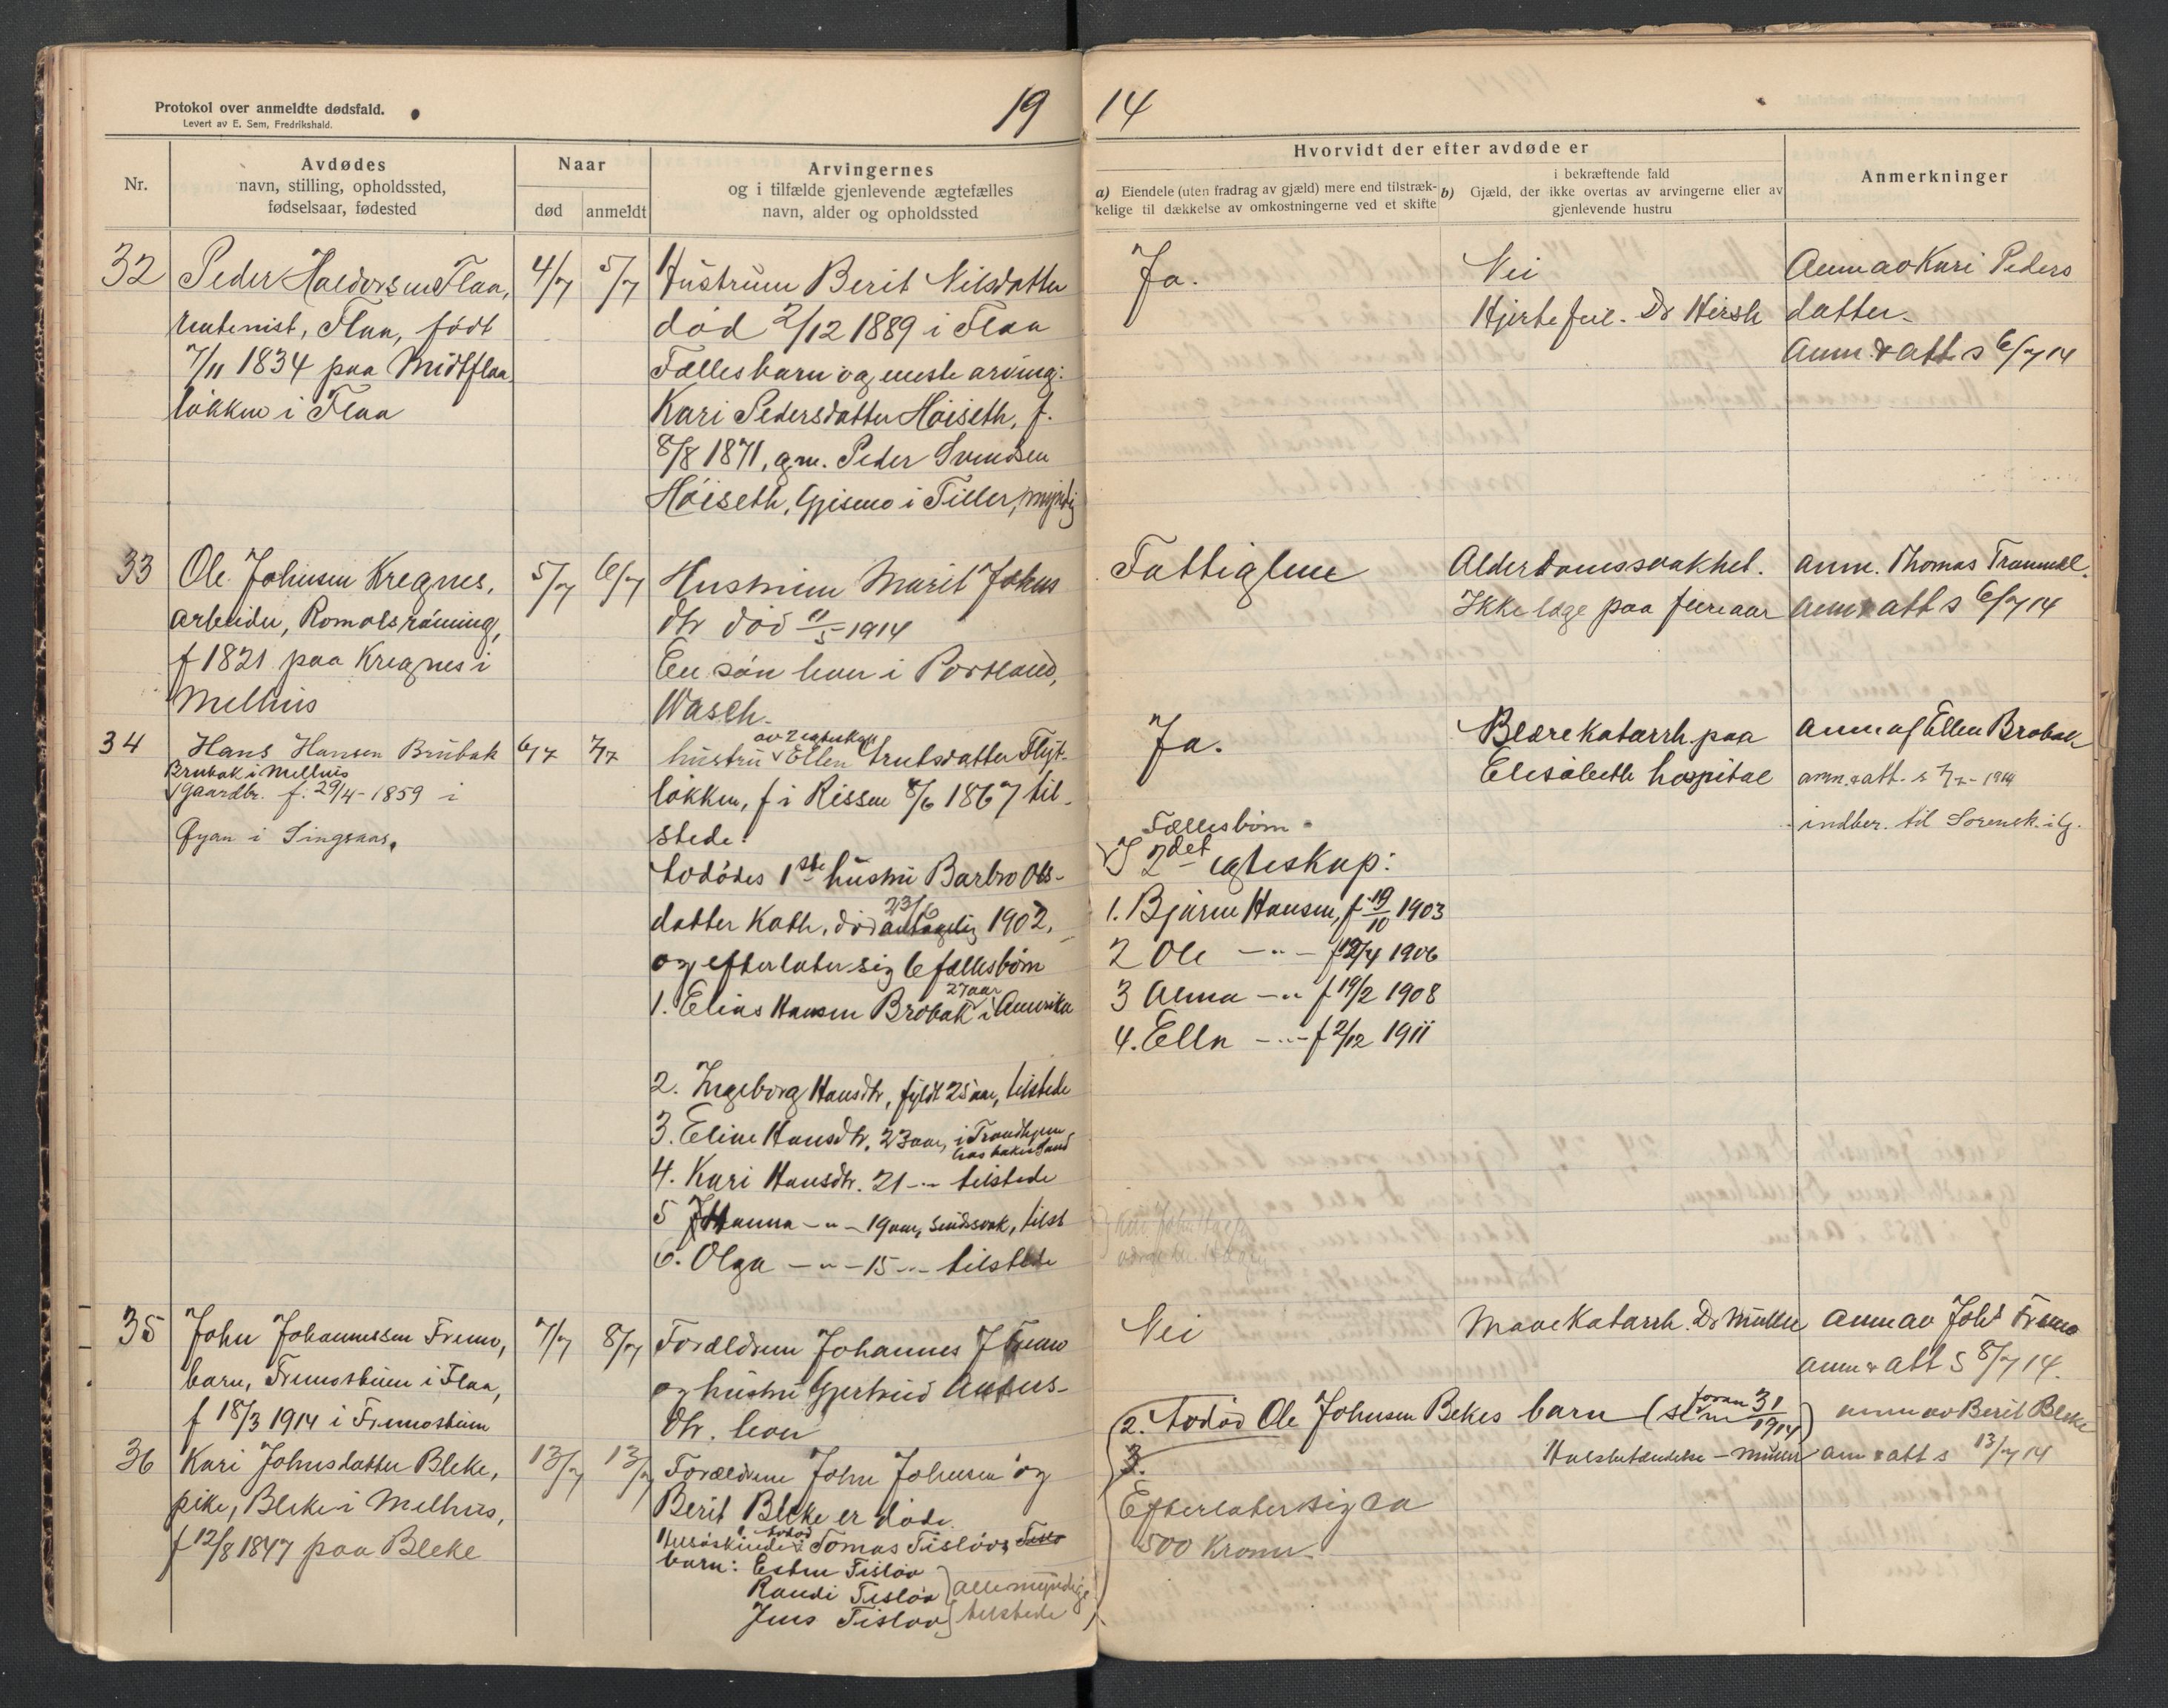 Protokol over anmeldte dødsfald.
Levert av E. Sem, Fredrikshald.
19 14
Nr.
Avdødes
navn, stilling, opholdssted,
fødselsaar, fødested
Naar
død
anmeldt
Arvingernes
og i tilfælde gjenlevende ægtefælles
navn, alder og opholdssted
Hvorvidt der efter avdøde er
a) Eiendele (uten fradrag av gjæld) mere end tilstræk-
kelige til dækkelse av omkostningerne ved et skifte
i bekræftende fald
b) Gjæld, der ikke overtas av arvingerne eller av
gjenlevende hustru
Anmerkninger
32
Peder Haldorsen Flaa,
rentenist, Flaa, født
7/11 1834 paa Midtflaa
løkken i Flaa
4/7
5/7
Hustruen Berit Nilsdatter
død 2/12 1889 i Flaa
Fællesbarn og eneste arving:
Kari Pedersdatter Høiseth, f.
8/8 1871, gm. Peder Svendsen
Høiseth, Gjismo i Tiller, myndig
Ja.
Nei
Hjertefeil. Dr Hirsh
Anm av Kari Peders
datter.
Anm. & att s 6/7 14
33
Ole Johnsen Kregnes,
arbeider, Romolsrøining,
f 1821 paa Kregnes i
Melhus
5/7
6/7
Hustruen Marit Johns
dtr død 11/5 1914
En søn lever i Portland,
Wasch.
Fattiglem
Alderdomssvakhet.
Ikke læge paa flere aar
anm. Thomas Trammel.
anm & att s 6/7 14
34
Hans Hansen Brubak
Brubak i Melhus
gaardbr. f. 29/4 - 1859 i
Gyan i Singsaas.
6/7
7/7
av 2 egteskap
hustru v Ellen Arntsdatter Flyt-
løkken, f i Rissen 8/6 1867 til-
stede.
Avdødes 1ste hustru Barbro Ols-
datter Koth, død antagelig 23/6 1902,
og efterlater sig 6 fællesbørn
1. Elias Hansen Brobak 27 aar i Amerika
2. Ingeborg Hansdtr, fyldt 25 aar, tilstede
3. Eline Hansdtr. 23 aar, i Trondhjem
hos baker Sand
4. Kari Hansdtr. 21 -"- tilstede
5 Johanna -"- 19 aar, sindssvak, tilst
6. Olga -"- 15 -"- tilstede
Ja.
Fællesbørn
I 2det egteskap:
1. Bjarne Hansen, f 19/10 1903
2 Ole -"- f 12/4 1906
3 Alma -"- f 19/2 1908
4. Ella -"- f 2/12 1911
Blærekatarrh paa
Elisabeth hospital
Anm af Ellen Brobak
anm. & att. s 7/7 - 1914
indber. til Sorensk. i G.
35
John Johannessen Fremo,
barn, Fremosteien i Flaa,
f 18/3 1914 i Fremosteien
7/7
8/7
Forældrene Johannes J Fremo
og hustru Gjertrud Anders-
dtr. lever
Nei
Mavekatarrh. Dr Müller
anm av Johs Fremo
anm & att s 8/7 14.
36
Kari Johnsdatter Bleke,
pike, Bleke i Melhus,
f 12/8 1847 paa Bleke
13/7
13/7
Forældrene John Johnsen og
Berit Bleke er døde.
Helsøskende: 1. avdød Tomas Tisløvs
barn: Esten Tisløv
Randi Tisløv
Jens Tisløv
alle myndige
tilstede
2. Avdød Ole Johnsen Bekes barn (se
foran 31/1914)
3.
Efterlater sig ca
500 Kroner.
Halsbetændelse - Müller
anm av Berit Bleke
anm & att s 13/7 14